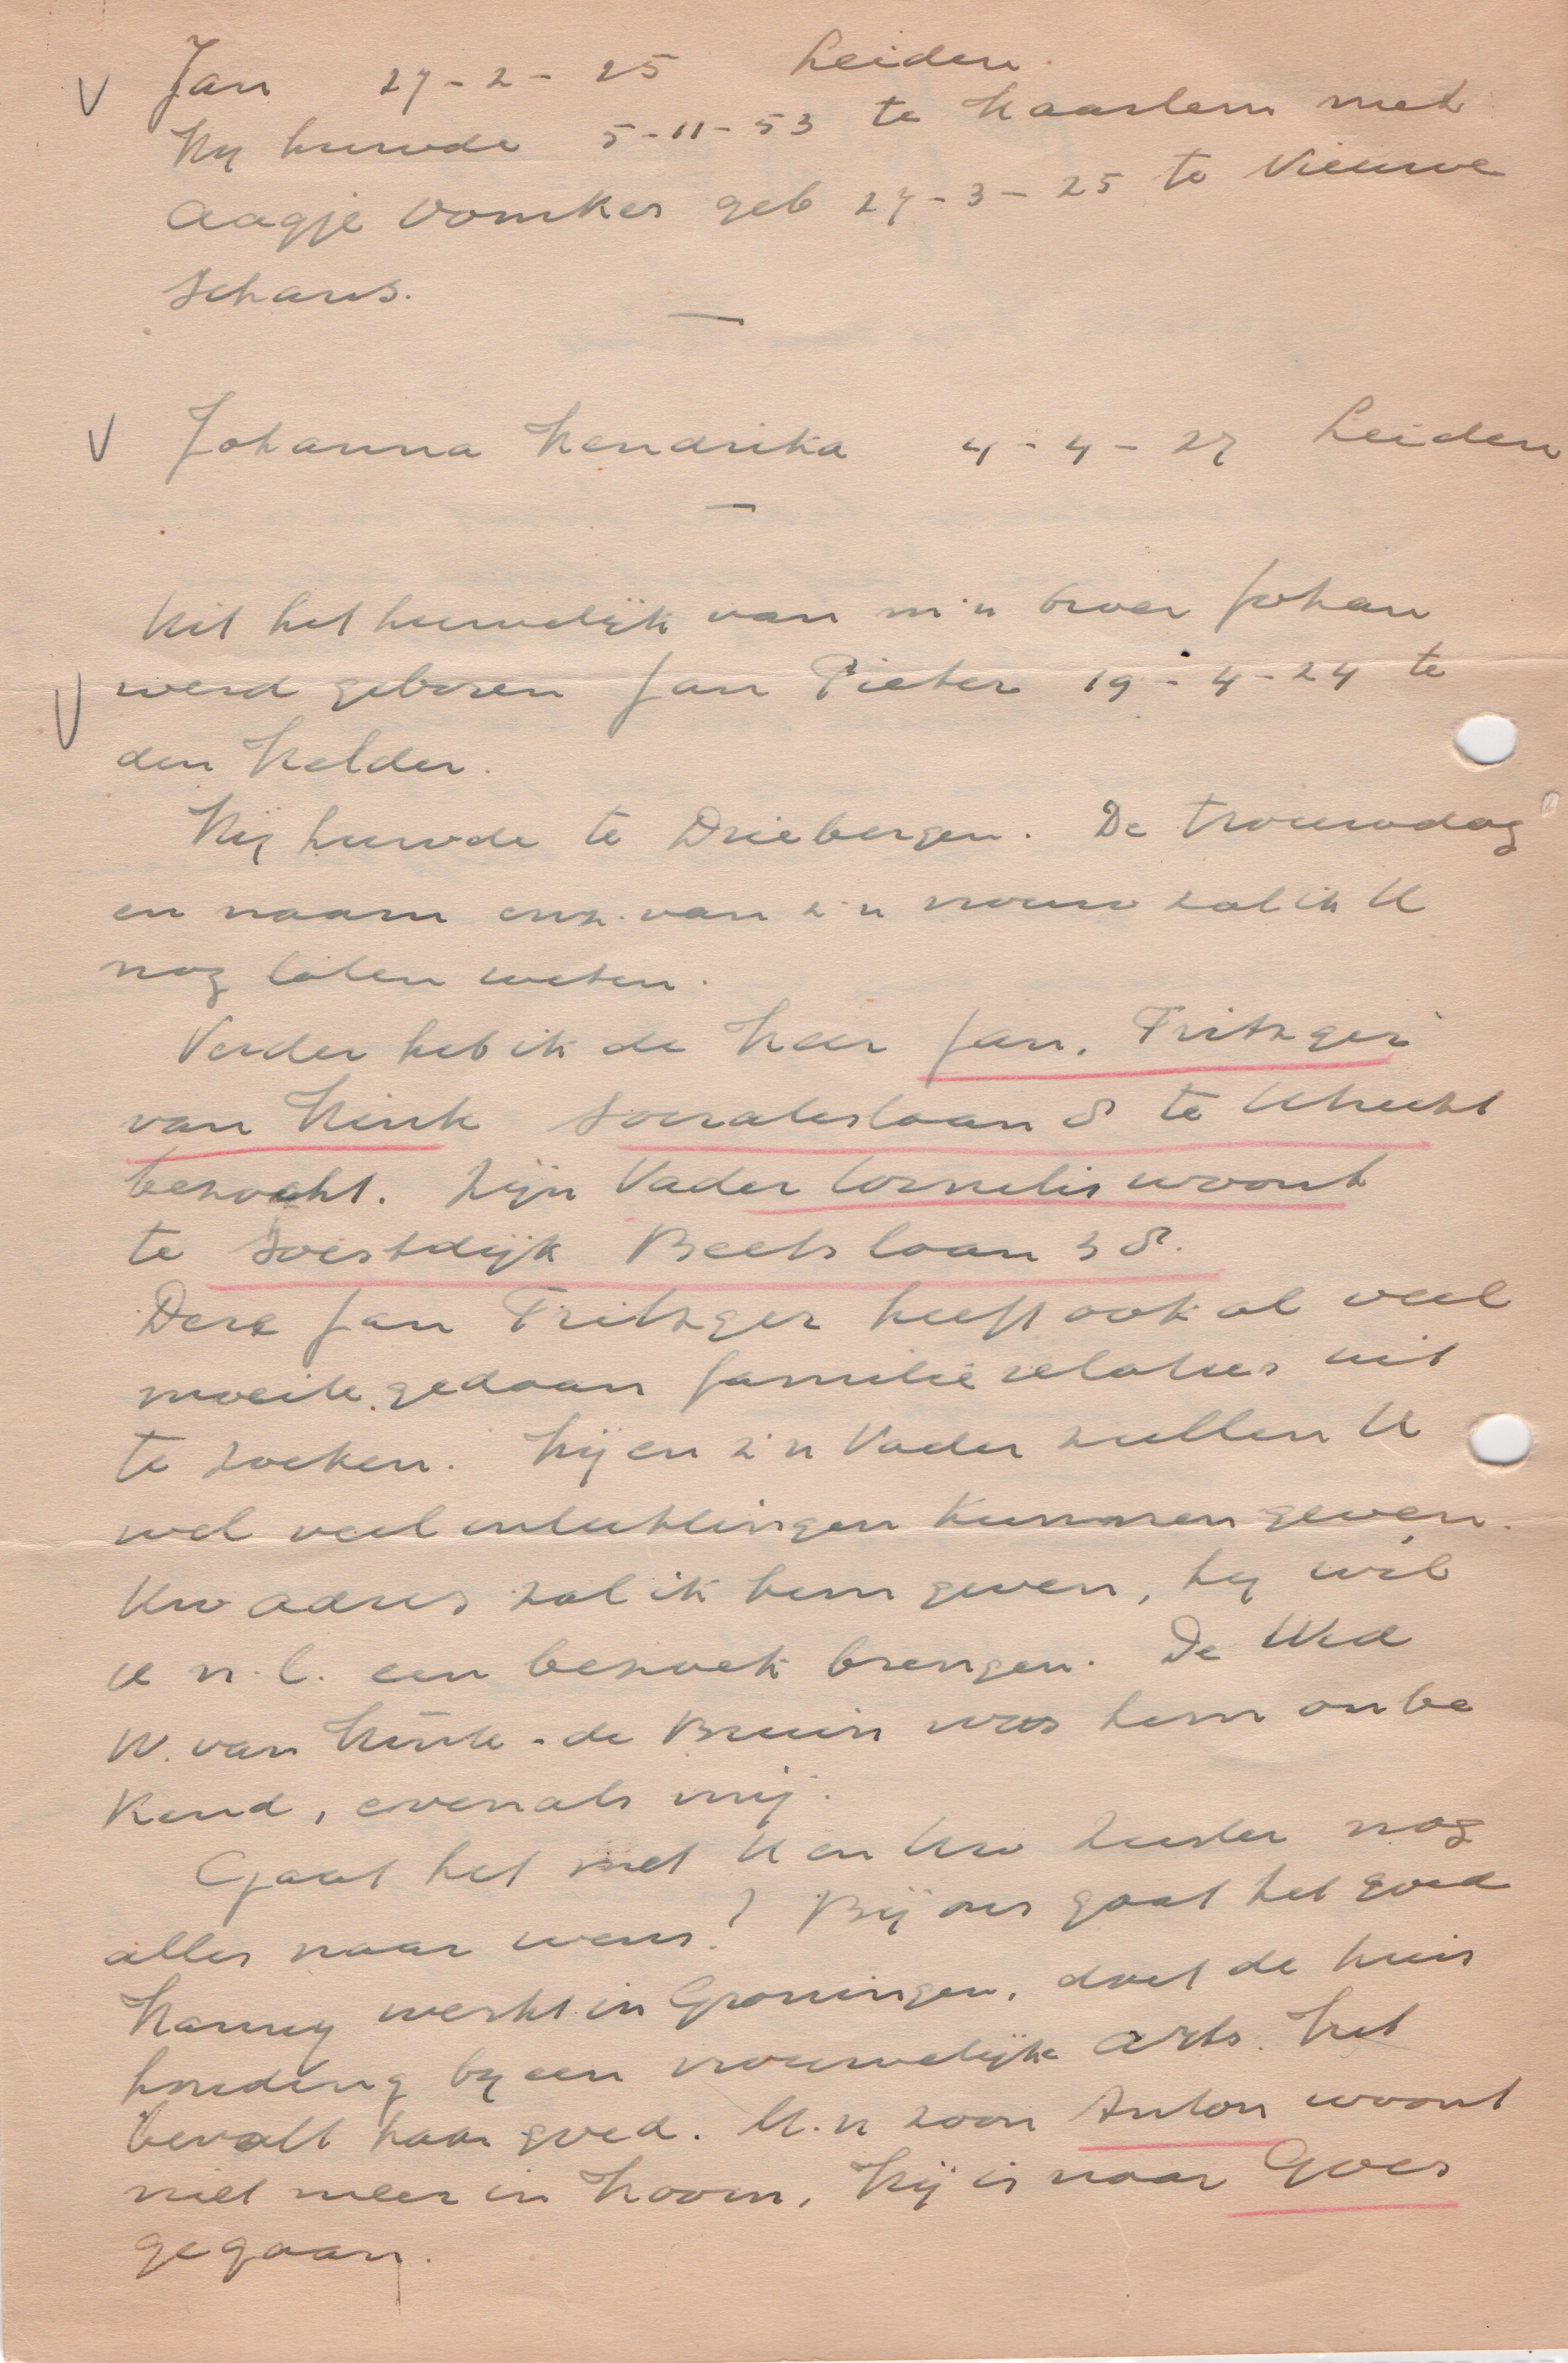 V Jan 27-2-25 Leiden.
Hij huwde 5-11-53 te Haarlem met
Aagje Vomker geb 27-3-25 te Nieuwe
Schans.
V Johanna Hendrika 4-4-27 Leiden
Uit het huwelijk van m'n broer Johan
V werd geboren Jan Pieter 19-4-24 te
den Helder.
Hij huwde te Driebergen. De trouwdag
en naam enz. van z'n vrouw zal ik U
nog laten weten.
Verder heb ik de Heer Jan. Fritzger
van Hink Socrateslaan 8 te Utrecht
bezocht. Zijn Vader Cornelis woont
te Soestdijk Beetslaan 38.
Deze Jan Fritzger heeft ook al veel
moeite gedaan familie relaties uit
te zoeken. Hij en z'n Vader zullen U
wel veel inlichtingen kunnen geven.
Uw adres zal ik hem geven, hij wil
U n.l. een bezoek brengen. De Wed
W. van Hink-de Bruin was hem onbe
kend, evenals mij.
Gaat het met U en Uw Zuster nog
alles naar wens? Bij ons gaat het goed
Hanny werkt in Groningen, doet de huis
houding bij een vrouwelijke arts. Het
bevalt haar goed. M.n zoon Anton woont
niet meer in Hoorn, hij is naar Goes
gegaan.